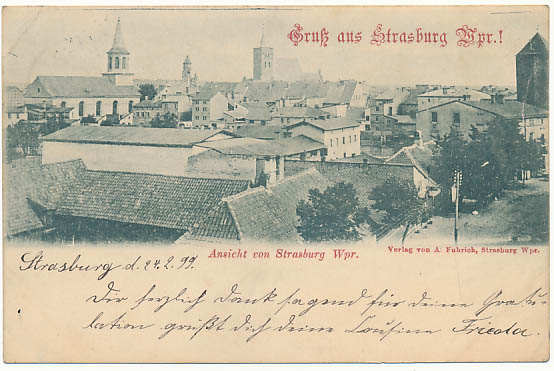 Gruß aus Strasburg Wpr.!
Ansicht von Strasburg Wpr.
Verlag von A. Fuhrich, Strasburg Wpr.
Strasburg d. 24.2.99.
Dir herzlich Dank sagend für deine Gratu-
lation grüßt dich deine Cousine Frieda.